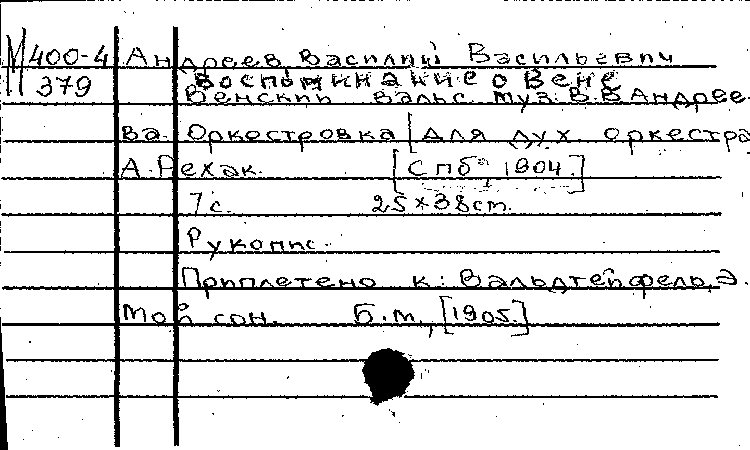 М 400-4 Андреев, Василий Васильевич
379 Воспоминание о Вене
Венский вальс муз. В.В Андрее-
ва. Оркестровка [для дух. оркестра
А. Рехак. [Спб, 1904.]
7 с. 25×38cm.
Рукопис.
Приплетено к: Вальдтейфель, Э.
Мой сон. Б.м., [1905.]